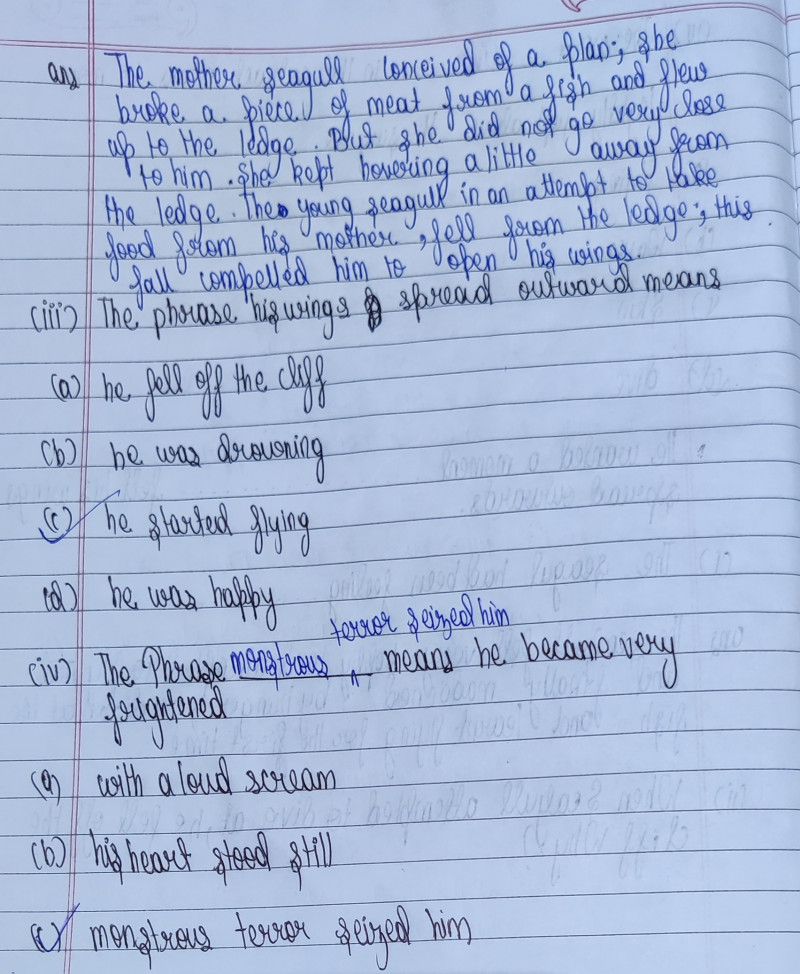 ans The mother seagull conceived of a plan; she
broke a piece of meat from a fish and flew
up to the ledge. But she did not go very close
to him. She kept hovering a little away from
the ledge. The young seagull in an attempt to take
food from his mother, fell from the ledge; this
fall compelled him to open his wings.
(iii) The phrase his wings spread outward means
(a) he fell off the cliff
(b) he was drowning
(c) he started flying
(d) he was happy
terror seized him
(iv) The Phrase monstrous ^ means he became very
frightened
(a) with a loud scream
(b) his heart stood still
(c) monstrous terror seized him